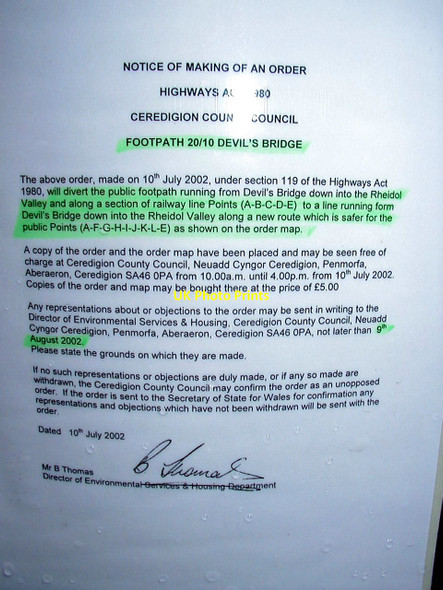 NOTICE OF MAKING OF AN ORDER
HIGHWAYS AC 980
CEREDIGION COUN COUNCIL
FOOTPATH 20/10 DEVIL'S BRIDGE
The above order, made on 10th July 2002, under section 119 of the Highways Act
1980, will divert the public footpath running from Devil's Bridge down into the Rheidol
Valley and along a section of railway line Points (A-B-C-D-E) to a line running form
Devil's Bridge down into the Rheidol Valley along a new route which is safer for the
public Points (A-F-G-H-I-J-K-L-E) as shown on the order map.
A copy of the order and the order map have been placed and may be seen free of
charge at Ceredigion County Council, Neuadd Cyngor Ceredigion, Penmorfa,
Aberaeron, Ceredigion SA46 0PA from 10.00a.m. until 4.00p.m. from 10th July 2002.
Copies of the order and map may be bought there at the price of £5.00
UK Photo Prints
Any representations about or objections to the order may be sent in writing to the
Director of Environmental Services & Housing, Ceredigion County Council, Neuadd
Cyngor Ceredigion, Penmorfa, Aberaeron, Ceredigion SA46 0PA, not later than 9th
August 2002.
Please state the grounds on which they are made.
If no such representations or objections are duly made, or if any so made are
withdrawn, the Ceredigion County Council may confirm the order as an unopposed
order. If the order is sent to the Secretary of State for Wales for confirmation any
representations and objections which have not been withdrawn will be sent with the
order.
Dated 10th July 2002
B Thomas
Mr B Thomas
Director of Environmental Services & Housing Department